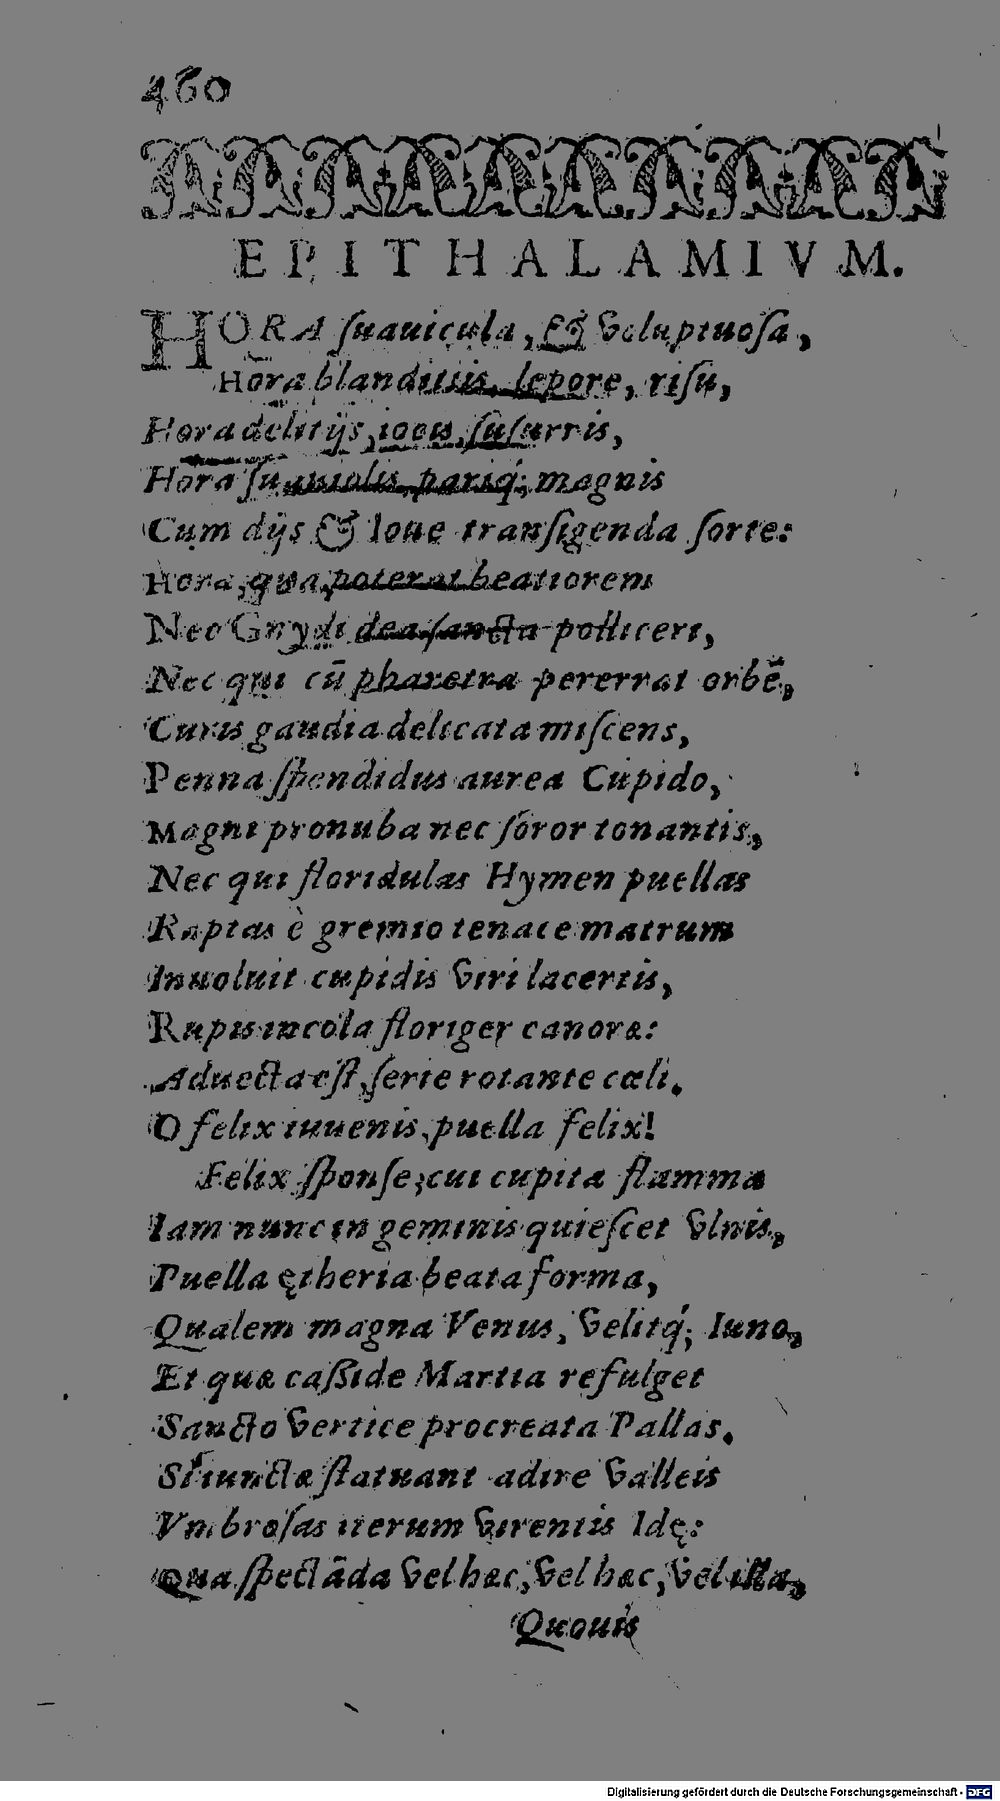 460
EPITHALAMIVM.
HORA ſuauicula, & voluptuoſa,
Hora blanditiis, lepore, riſu,
Hora delitijs, iocis, ſuſurris,
Hora ſuauiolis, pariq́; magnis
Cum dijs & Ioue tranſigenda ſorte:
Hora, qua poterat beatiorem
Nec Gnydi dea ſancta polliceri,
Nec qui cū pharetra pererrat orbē,
Curis gaudia delicata miſcens,
Penna ſplendidus aurea Cupido,
Magni pronuba nec ſoror tonantis,
Nec qui floridulas Hymen puellas
Raptas è gremio tenace matrum
Inuoluit cupidis viri lacertis,
Rupis incola floriger canoræ:
Aduecta eſt, ſerie rotante cœli.
O felix iuuenis, puella felix!
Felix ſponſe, cui cupita flamma
Iam nunc in geminis quieſcet vlnis,
Puella ętheria beata forma,
Qualem magna Venus, velitq́; Iuno,
Et quæ caßide Martia refulget
Sancto vertice procreata Pallas.
Si iunctæ ſtatuant adire valleis
Vmbroſas iterum virentis Idę:
Qua ſpectāda vel hæc, vel hæc, vel illa,
Quouis
Digitalisierung gefördert durch die Deutsche Forschungsgemeinschaft - DFG